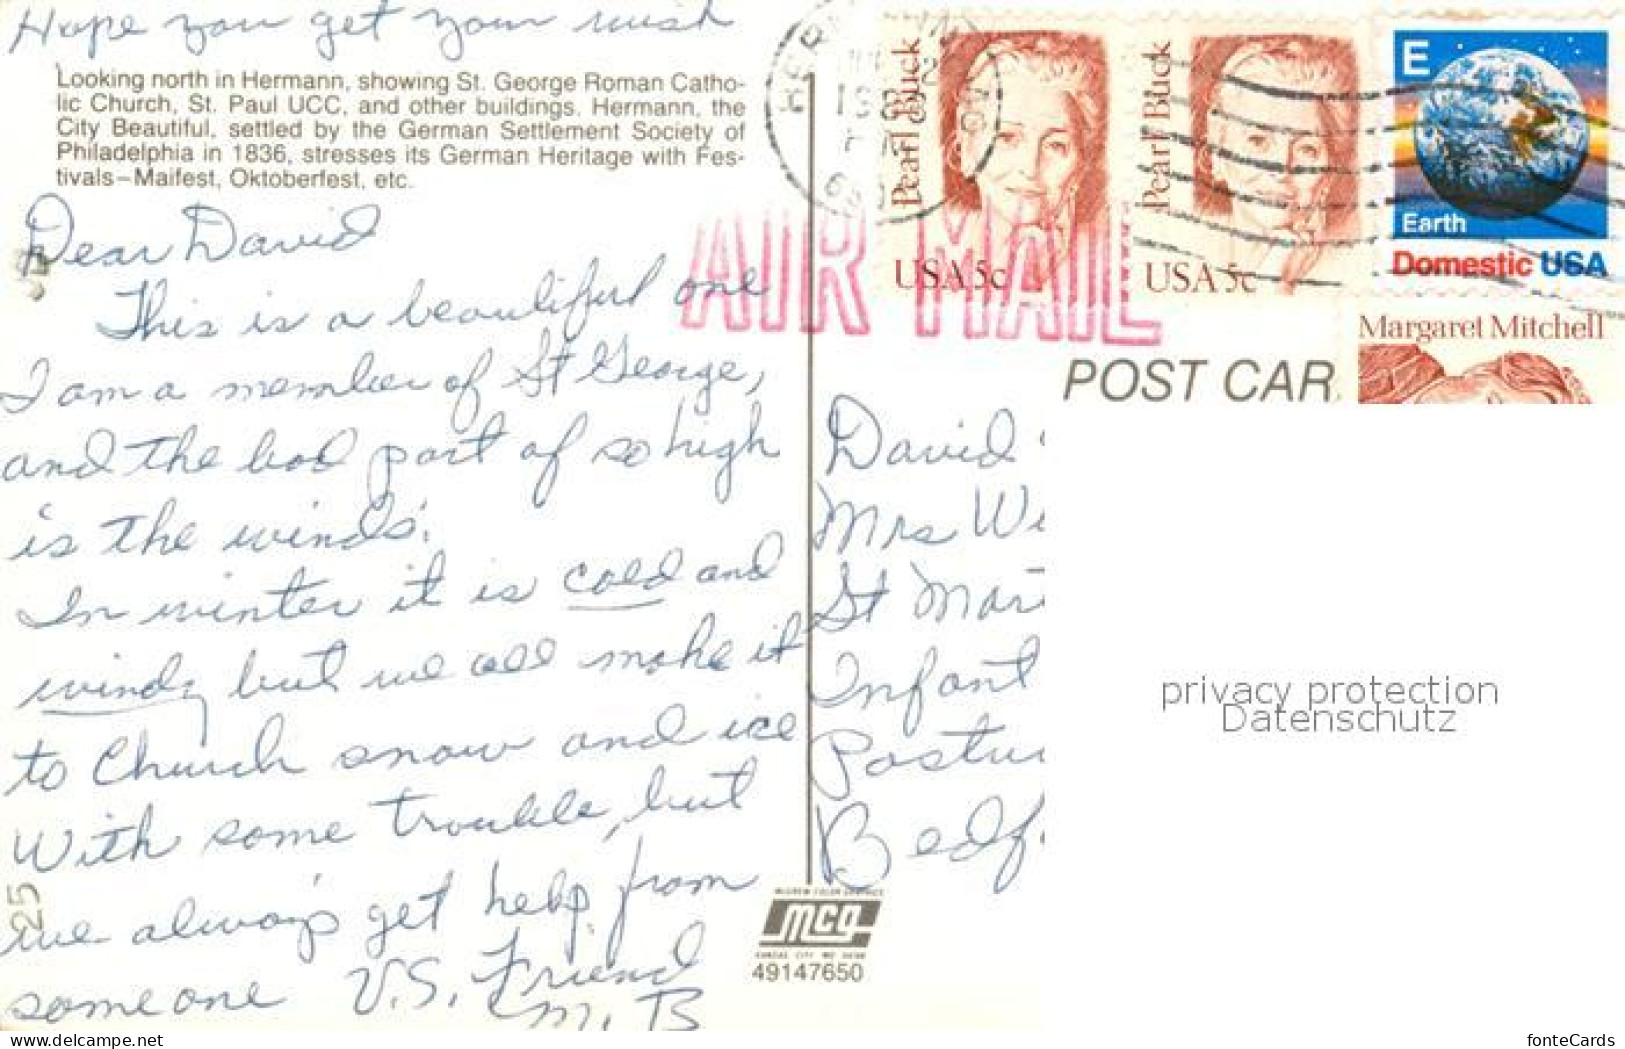 Hope you get your wish
Looking north in Hermann, showing St. George Roman Catho-
lic Church, St. Paul UCC, and other buildings. Hermann, the
City Beautiful, settled by the German Settlement Society of
Philadelphia in 1836, stresses its German Heritage with Fes-
tivals–Maifest, Oktoberfest, etc.
Dear David
This is a beautiful one
I am a member of St George,
and the bad part of so high
is the winds.
In winter it is cold and
windy but we all make it
to Church snow and ice
With some trouble, but
we always get help from
someone U.S. Friend
M. B
25
Pearl Buck
USA 5c
Pearl Buck
USA 5c
E
Earth
Domestic USA
Margaret Mitchell
AIR MAIL
POST CAR
David
Mrs Wi
St Mar
Infant
Postu
Bedf
mcg
49147650
privacy protection
Datenschutz
www.delcampe.net
fonteCards